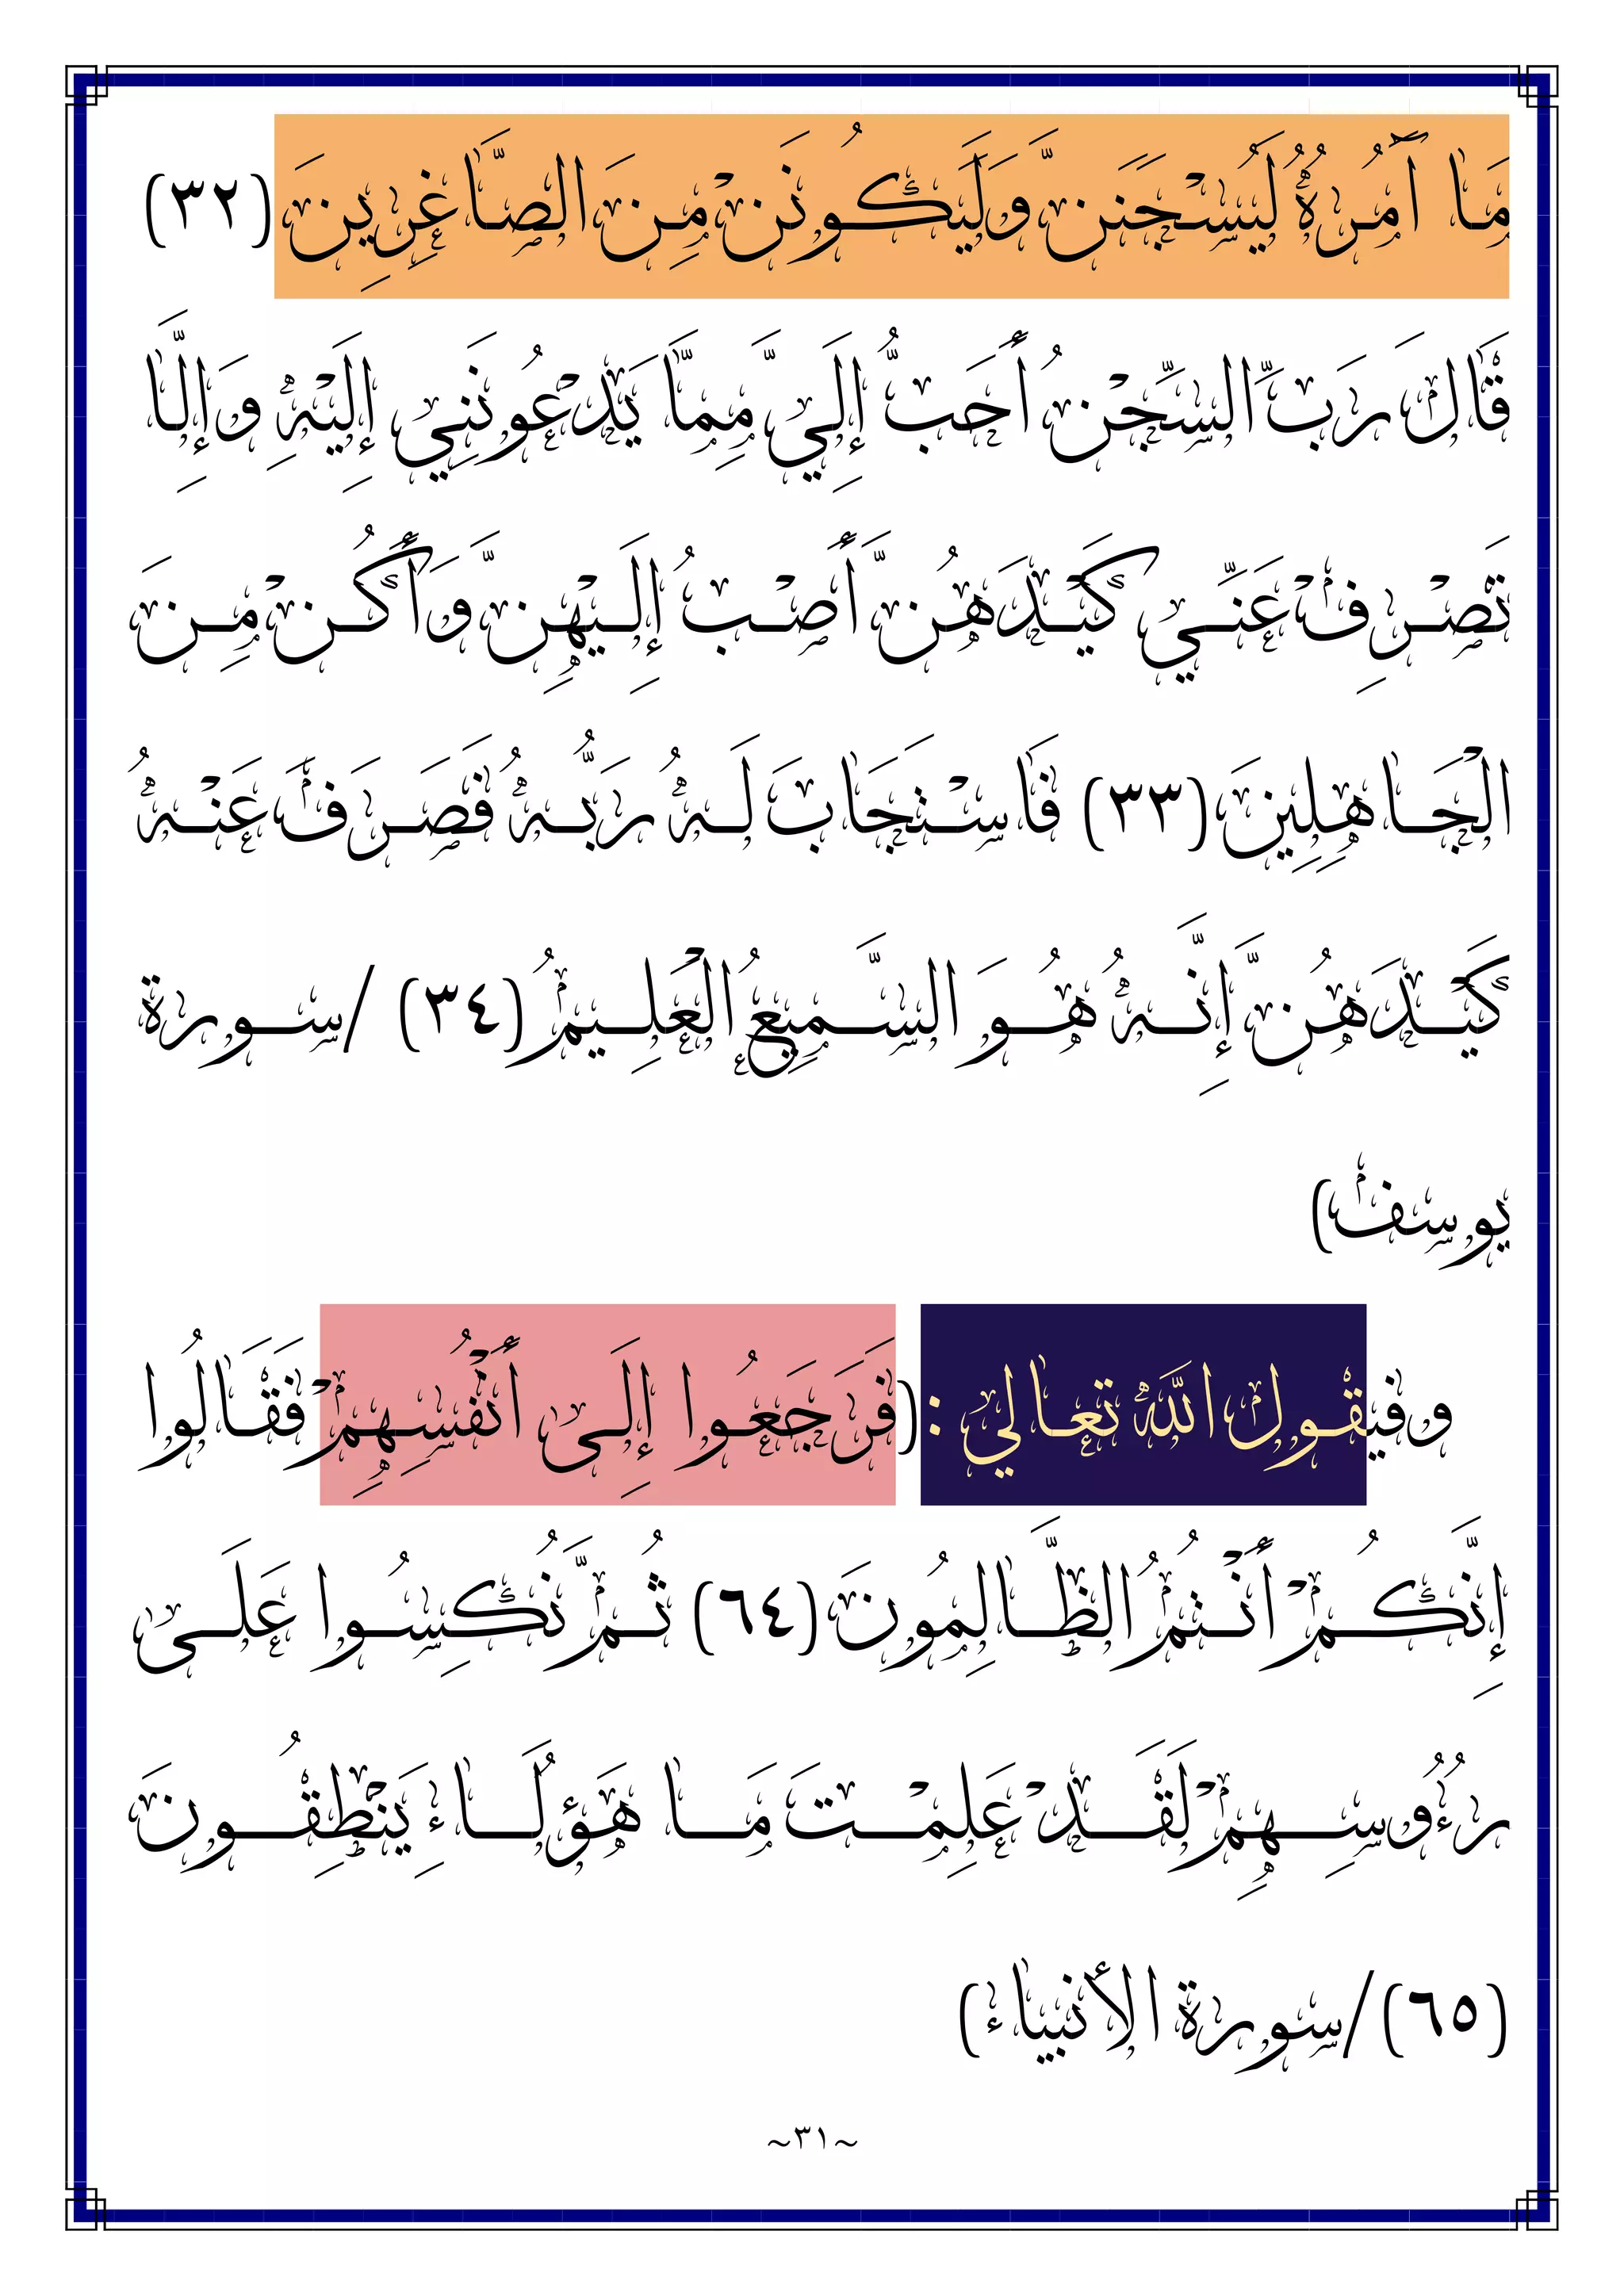 مَا آمُرُهُ لَيُسْجَنَنَّ وَلَيَكُونَنْ مِنَ الصَّاغِرِينَ (٣٢)
قَالَ رَبِّ السِّجْنُ أَحَبُّ إِلَيَّ مِمَّا يَدْعُونَنِي إِلَيْهِ وَإِلَّا
تَصْرِفْ عَنِّي كَيْدَهُنَّ أَصْبُ إِلَيْهِنَّ وَأَكُنْ مِنَ
الْجَاهِلِينَ (٣٣) فَاسْتَجَابَ لَهُ رَبُّهُ فَصَرَفَ عَنْهُ
كَيْدَهُنَّ إِنَّهُ هُوَ السَّمِيعُ الْعَلِيمُ (٣٤) /سورة
يوسف)
وفيقول الله تعالي : (فَرَجَعُوا إِلَى أَنْفُسِهِمْ فَقَالُوا
إِنَّكُمْ أَنْتُمُ الظَّالِمُونَ (٦٤) ثُمَّ نُكِسُوا عَلَى
رُءُوسِهِمْ لَقَدْ عَلِمْتَ مَا هَؤُلَاءِ يَنْطِقُونَ
(٦٥)/سورة الأنبياء)
~٣١~